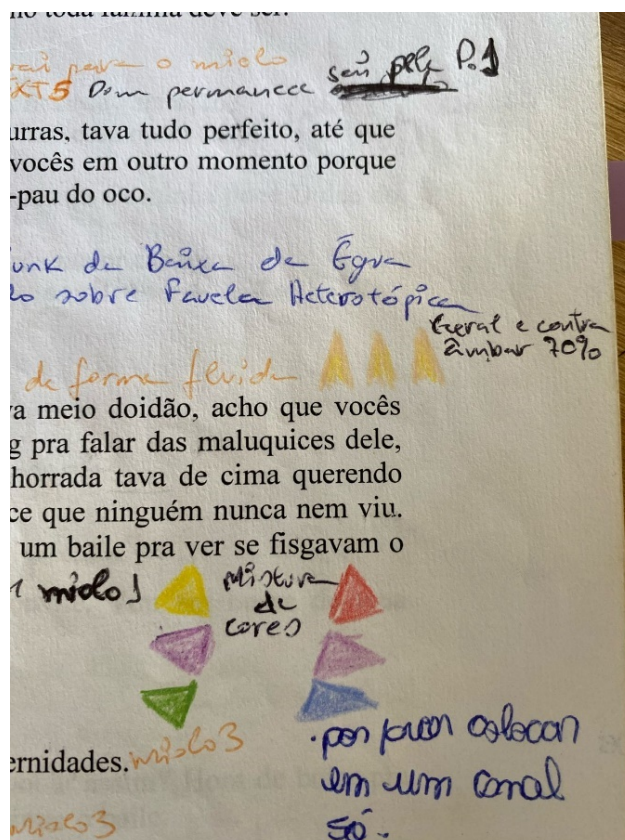 no toda família deve ser.
vai para o miolo
EXT5 Dom permanece sai pela P.1
urras, tava tudo perfeito, até que
vocês em outro momento porque
-pau do oco.
unk da Baixa da Égua
sobre Favela Heterotópica
Geral e contra
âmbar 70%
de forma fluida
a meio doidão, acho que vocês
g pra falar das maluquices dele,
horrada tava de cima querendo
ce que ninguém nunca nem viu.
um baile pra ver se fisgavam o
miolo 1
Mistura
de
cores
ernidades. miolo 3
. por favor colocar
em um canal
só.
miolo 3